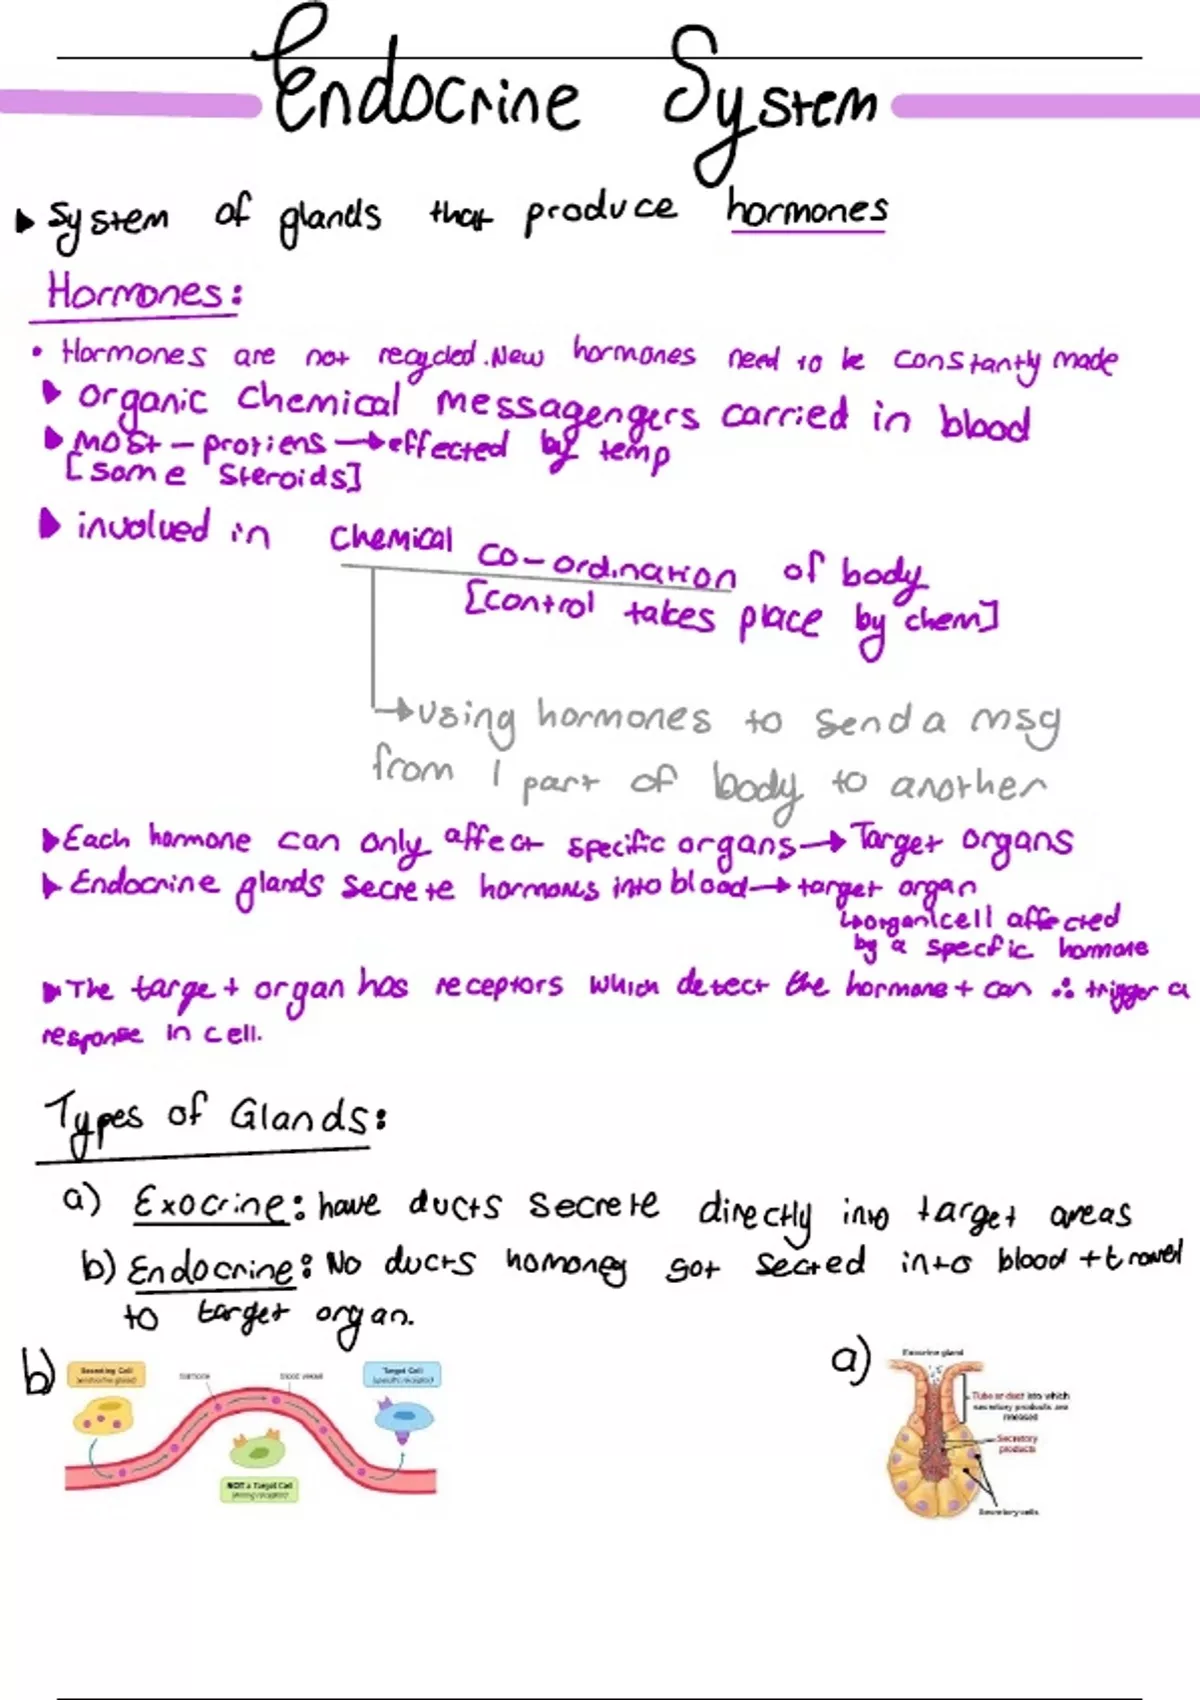 Endocrine System
▶ System of glands that produce hormones
Hormones:
• Hormones are not recycled. New hormones need to be constantly made
▶ organic chemical messagengers carried in blood
▶ most - protiens → effected by temp
[some steroids]
▶ involved in chemical co-ordination of body
[control takes place by chem]
→ using hormones to send a msg
from 1 part of body to another
▶ Each hormone can only affect specific organs → Target organs
▶ Endocrine glands secrete hormones into blood → target organ
↳ organ/cell affected
by a specfic hormone
▶ The target organ has receptors which detect the hormone + can ∴ trigger a
response in cell.
Types of Glands:
a) Exocrine: have ducts secrete directly into target areas
b) Endocrine: No ducts homones got secred into blood + travel
to target organ.
b)
Secreting Cell
(endocrine gland)
hormone
blood vessel
Target Cell
(specific receptor)
NOT a Target Cell
(wrong receptor)
a)
Exocrine gland
Tube or duct into which
secretory products are
released
Secretory
products
Secretory cells